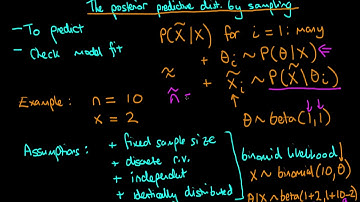 The posterior predictive dist. by sampling
- To predict
- Check model fit
P(x̃|x) for i = 1: many
+ θi ~ P(θ|x) ←
x̃
+ x̃i ~ P(x̃|θi)
ñ =
Example: n = 10
x = 2
θ ~ beta(1,1)
Assumptions: + fixed sample size
+ discrete r.v.
+ independent
+ identically distributed
binomial likelihood
X ~ binomial(10,θ)
θ|X ~ beta(1+2, 1+10-2)